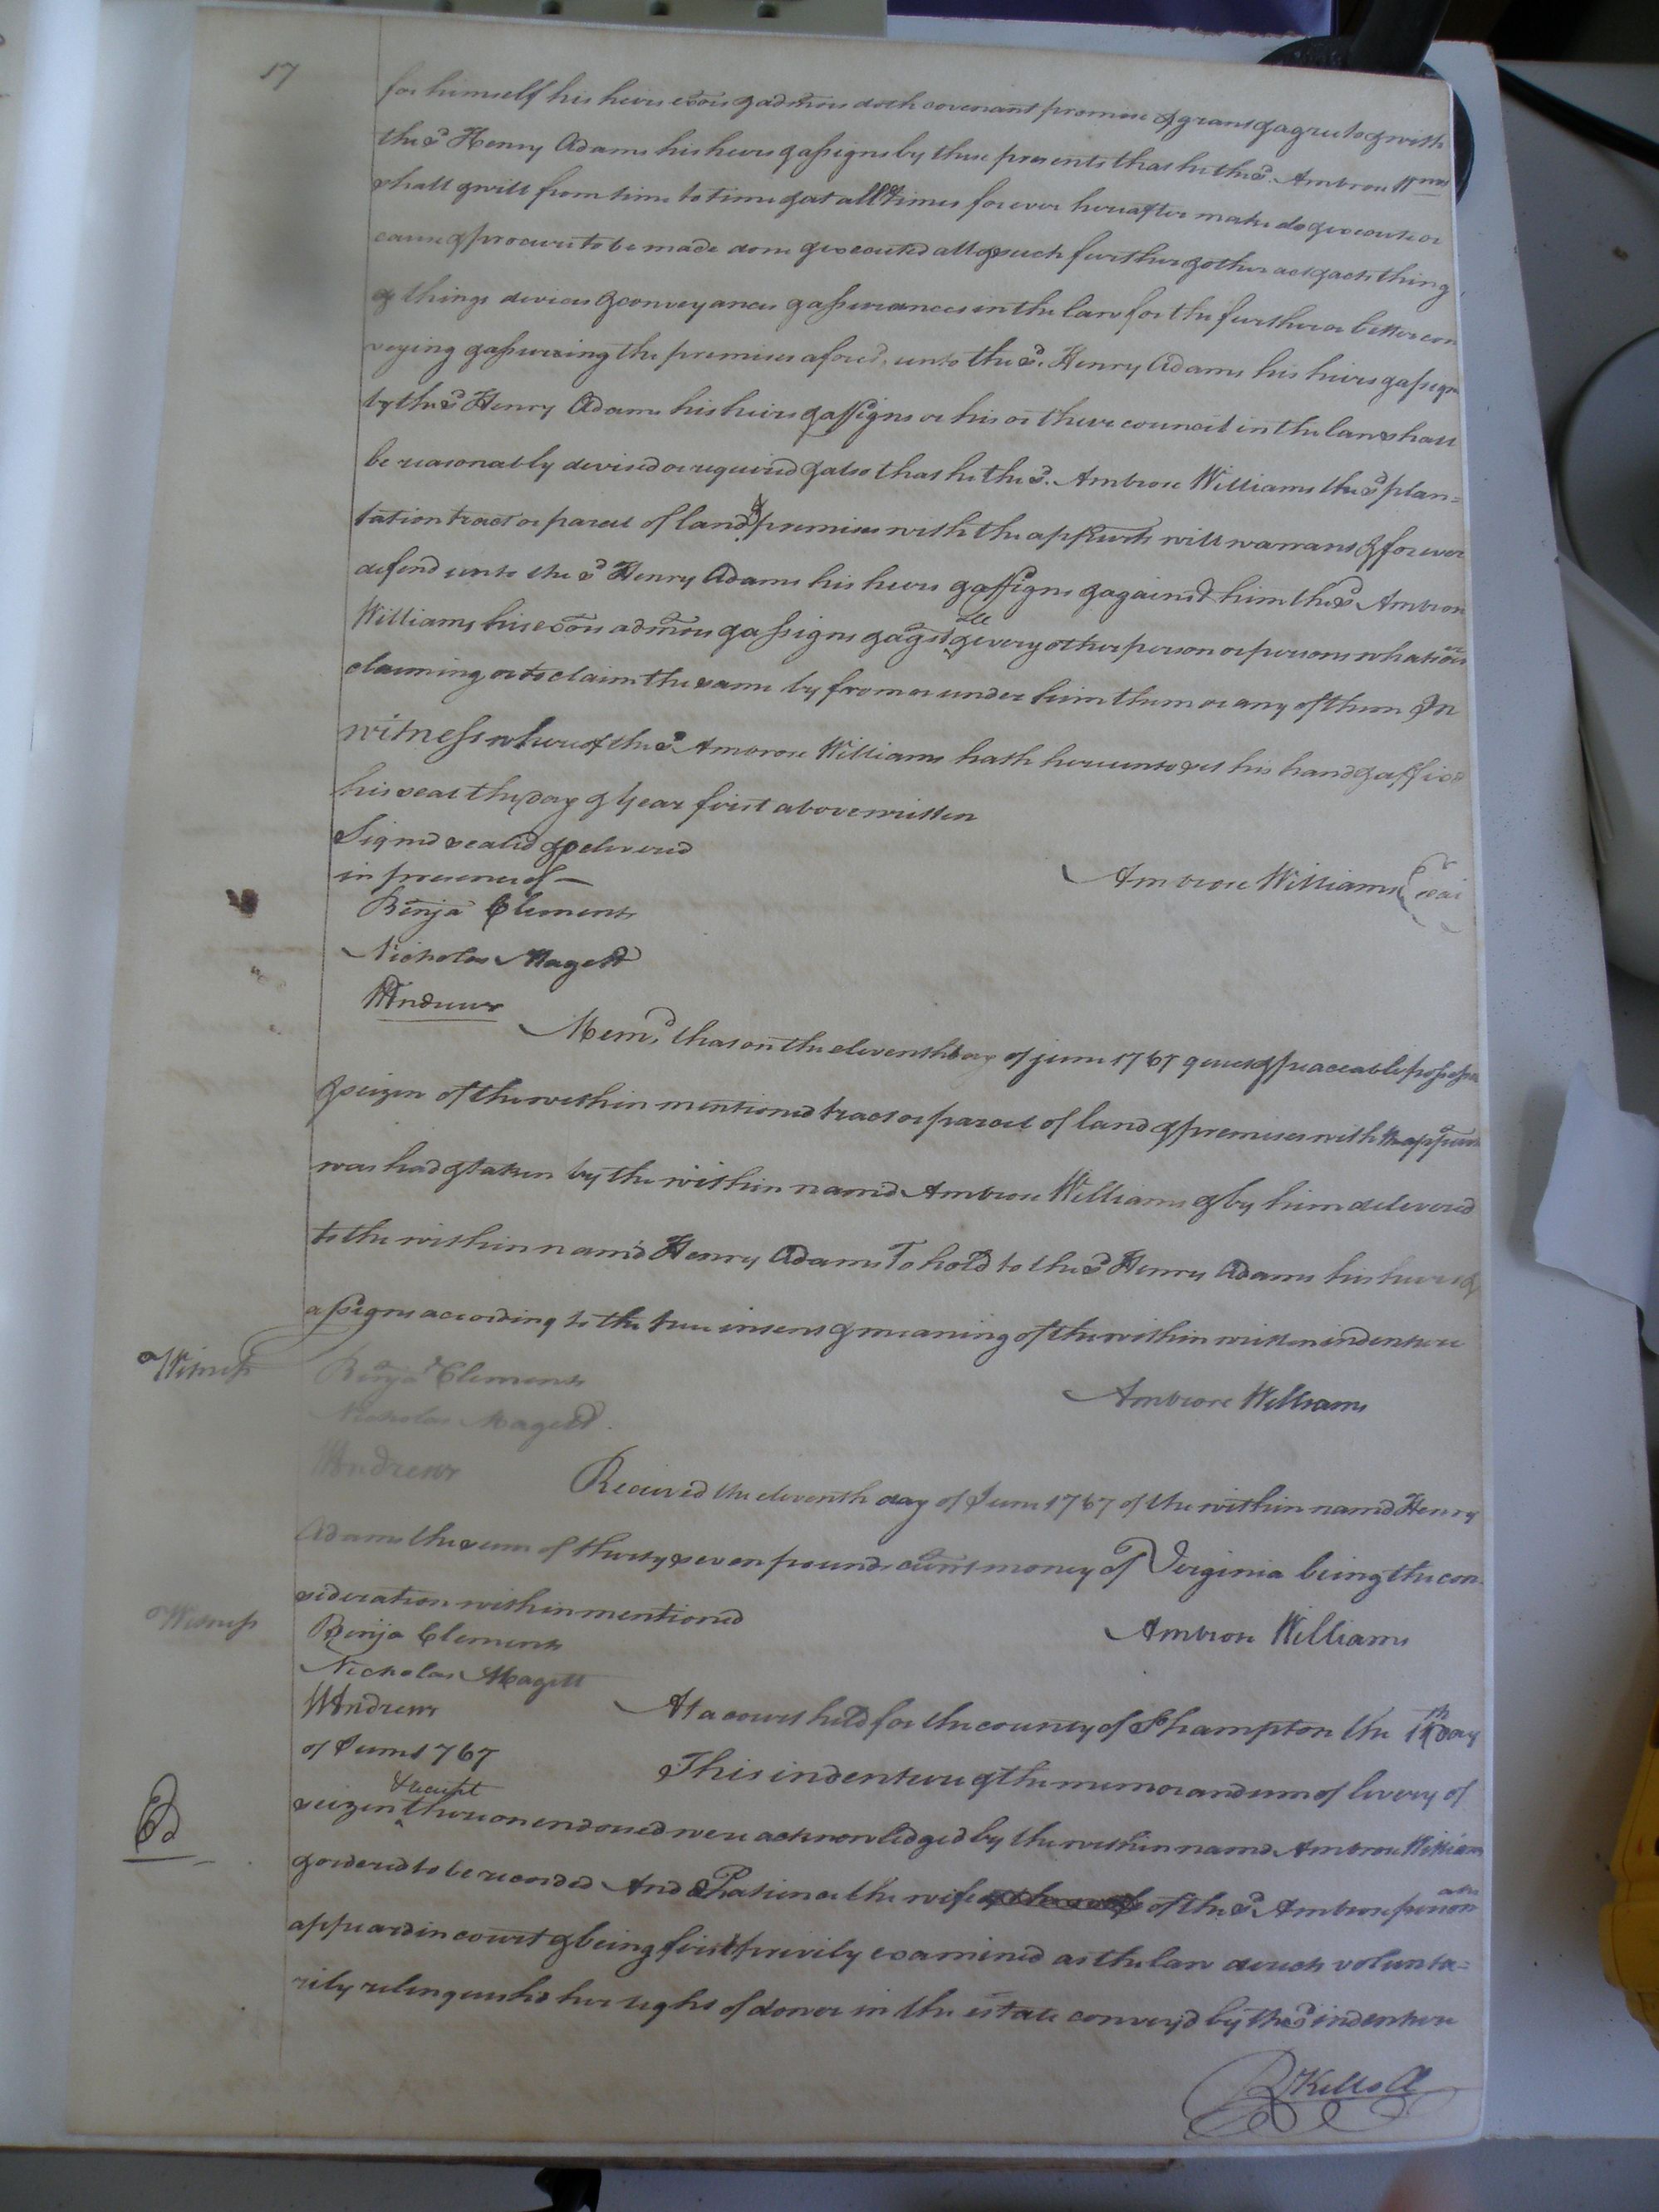 17
for himself his heirs exõrs & admõrs doth covenant promise & grant & agree to & with
the sd Henry Adams his heirs & assigns by these presents that he the sd. Ambrose Wms
shall & will from time to time & at all times for ever hereafter make do & execute or
cause & procure to be made done & executed all & such further & other act & acts thing
& things devices & conveyances & assurances in the law for the further or better con
veying & assureing the premises aforesd. unto the sd. Henry Adams his heirs & assigns
by the sd Henry Adams his heirs & assigns or his or their council in the law shall
be reasonably devised or required & also that he the sd. Ambrose Williams the sd plan=
tation tract or parcel of land & premises with the appurts will warrant & for ever
defend unto the sd Henry Adams his heirs & assigns & against him the sd Ambrose
Williams his exõrs admõrs & assigns & agst all & every other person or persons whatsoever
claiming or to claim the same by from or under him them or any of them In
witness whereof the sd Ambrose Williams hath hereunto set his hand & affixd
his seal the day & year first above written
Signd seald & deliverd
in presence of —
Ambrose Williams (seal
Benja Clements
Nicholas Magett
WAndrews
Memd, that on the eleventh day of june 1767 quiet & peaceable possession
& seizen of the within mentioned tract or parcel of land & premises with the appurts
was had & taken by the within namd Ambrose Williams & by him delivered
to the within namd Henry Adams To hold to the sd Henry Adams his heirs &
assigns according to the true intent & meaning of the within written indenture
Witness
Benja Clements
Ambrose Williams
Nicholas Magett.
WAndrews
Received the eleventh day of June 1767 of the within namd Henry
Adams the sum of thirty seven pounds curnt money of Virginia being the con=
sideration within mentioned
Witness
Benja Clements
Ambrose Williams
Nicholas Magett
WAndrews
At a court held for the county of Sohampton the 11th day
of June 1767
This indenture & the memorandum of livery of
seizen & receipt thereon endorsed were acknowledged by the within namd Ambrose William
& orderd to be recorded And Patience the wife of the sd Ambrose person ally
appeard in court & being first privily examined as the law directs volunta=
rily relinquishd her right of dower in the estate convey'd by the sd indenture
Exd
RKello Cl